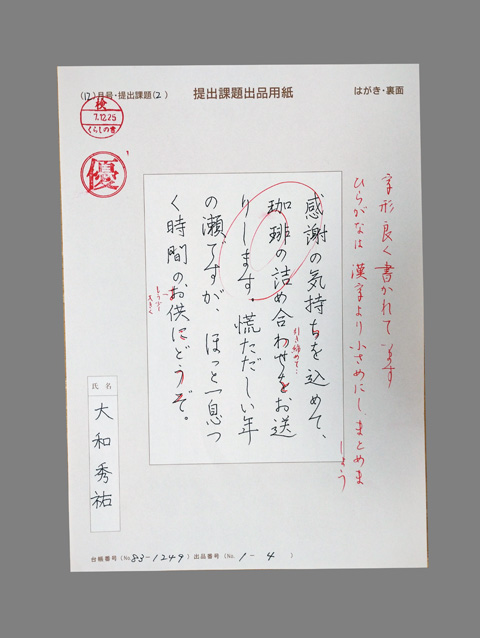 (12)月号・提出課題(2)
提出課題出品用紙
はがき・裏面
検
7.12.25
くらしの書
優
字形良く書かれています
ひらがなは漢字より小さめにし、まとめま
しょう
感謝の気持ちを込めて、
珈琲の詰め合わせをお送
りします。慌ただしい年
の瀬ですが、ほっと一息つ
く時間のお供にどうぞ。
引き締めて…
もう少し
大きく
氏名
大和秀祐
台帳番号(No.83-1249)出品番号(No. 1-4 )